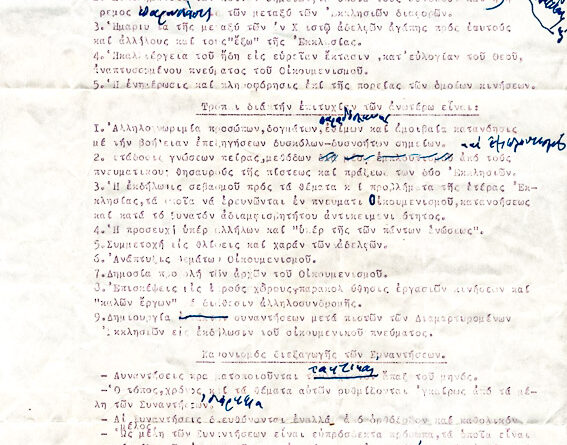 ρεμος τῶν μεταξύ τῶν Ἐκκλησιῶν διαφορῶν.
3. τῆς μεταξύ τῶν ἐν Χ ιστῷ ἀδελφῶν ἀγάπης πρός ἑαυτούς
καί ἀλλήλους καί τούς "ἔξω" τῆς Ἐκκλησίας.
4. Ἡ καλλιέργεια τοῦ ἤδη εἰς εὐρεῖαν ἔκτασιν, κατ' εὐλογίαν τοῦ Θεοῦ,
ἀναπτυσσομένου πνεύματος τοῦ Οἰκουμενισμοῦ.
5. Ἡ ἐνημέρωσις καί πληροφόρησις ἐπί τῆς πορείας τῶν ὁμοίων κινήσεων.
Τρόποι διά τήν ἐπιτυχίαν τῶν ἀνωτέρω εἶναι:
1. Ἀλληλογνωριμία προσώπων, δογμάτων, ἐθίμων καί ἀμοιβαία κατανόησις
μέ τήν βοήθειαν ἐπεξηγήσεων δυσκόλων-δυσνοήτων σημείων.
2. Μετάδοσις γνώσεων πείρας, μεθόδων ἀπό τούς
πνευματικούς θησαυρούς τῆς πίστεως καί πράξεως τῶν δύο Ἐκκλησιῶν.
3. Ἡ ἐκδήλωσις σεβασμοῦ πρός τά θέματα κ ί προβλήματα τῆς ἑτέρας Ἐκ-
κλησίας, τά ὁποῖα νά ἐρευνῶνται ἐν πνεύματι Οἰκουμενισμοῦ, κατανοήσεως
καί κατά τό δυνατόν ἀδιαμφισβητήτου ἀντικειμενι ότητος.
4. Ἡ προσευχή ὑπέρ ἀλλήλων καί "ὑπέρ τῆς τῶν πάντων ἑνώσεως".
5. Συμμετοχή εἰς θλίψεις καί χαράν τῶν ἀδελφῶν.
6. Ἀνάπτυξις θεμάτων Οἰκουμενισμοῦ.
7. Δημοσία προβολή τῶν ἀρχῶν τοῦ Οἰκουμενισμοῦ.
8. Ἐπισκέψεις εἰς ἱερούς χώρους, παρακολούθησις ἐργασιῶν κινήσεων καί
"καλῶν ἔργων" διάθεσιν ἀλληλοσυνδρομῆς.
9. Δημιουργία συναντήσεων μετά πιστῶν τῶν Διαμαρτυρομένων
Ἐκκλησιῶν εἰς ἐκδήλωσιν τοῦ οἰκουμενικοῦ πνεύματος.
Κανονισμός διεξαγωγῆς τῶν Συναντήσεων.
τακτικαί
- Συναντήσεις πραγματοποιοῦνται ἅπαξ τοῦ μηνός.
- Ὁ τόπος, χρόνος καί τά θέματα αὐτῶν ρυθμίζονται ἐγκαίρως ἀπό τά μέ-
λη τῶν Συναντήσεων.
- Αἱ συναντήσεις διευθύνονται ἐναλλάξ ἀπό ὀρθόδοξον καί καθολικόν
- Ὡς μέλη τῶν συναντήσεων εἶναι εὐπρόσδεκτα πρόσωπα, τά ὁποῖα εἶναι